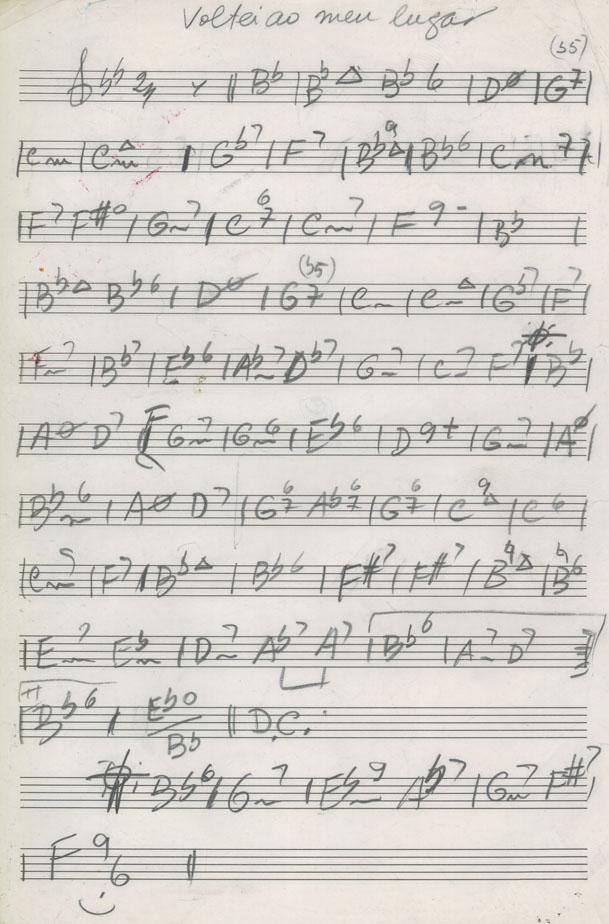 Voltei ao meu lugar
(b5)
bb 2/4 𝄾 || Bb | Bb△ Bb6 | Dø | G7 |
| Cm | Cm△ | Gb7 | F7 | Bb9△ | Bb6 | Cm77 |
F7 F#º | Gm7 | C6/7 | Cm7 | F9- | Bb |
(b5)
| Bb△ Bb6 | Dø | G7 | Cm | Cm△ | Gb7 | F7 |
Fm7 | Bb7 | Eb6 | Abm7 Db7 | Gm7 | Cm7 F7 | Bb |
| Aø D7 | Gm7 | Gm6 | Eb6 | D9+ | Gm7 | Aø |
| Bbm6 | Aø D7 | G6/7 Ab6/7 | G6/7 | C9 | C6 |
| F7 | Bb△ | Bb6 | F#7 | F#7 | B△ | B6
| Em7 Eb | Dm7 Ab7 A7 | Bb6 | Am7 D7
Bb6 | Ebº/Bb || D.C.
Bb6 | Gm7 | Ebm9 Ab7 | Gm7 F#7 |
| F9/6 ||